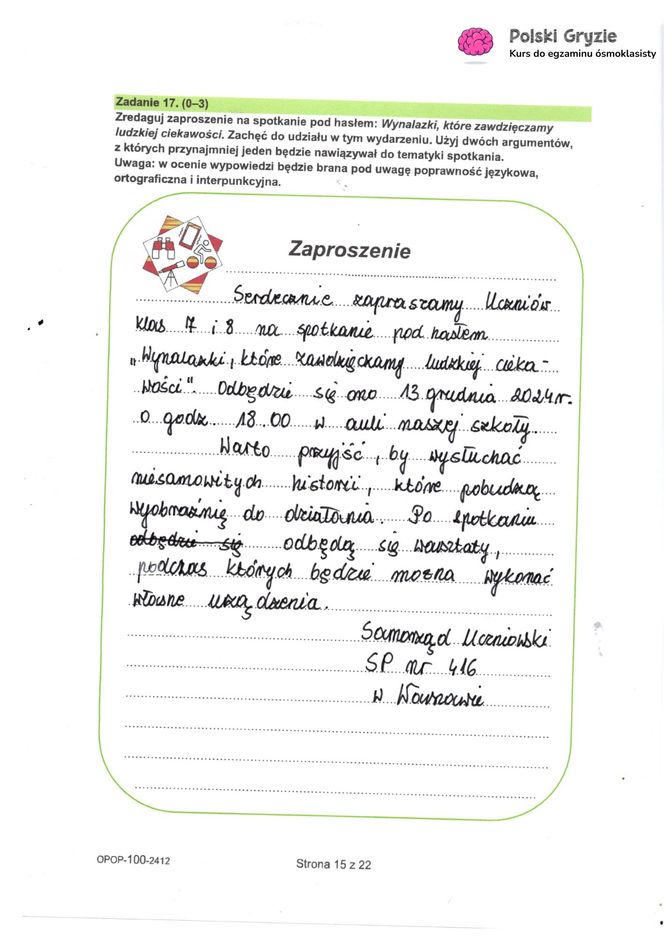 Polski Gryzie
Kurs do egzaminu ósmoklasisty
Zadanie 17. (0–3)
Zredaguj zaproszenie na spotkanie pod hasłem: Wynalazki, które zawdzięczamy
ludzkiej ciekawości. Zachęć do udziału w tym wydarzeniu. Użyj dwóch argumentów,
z których przynajmniej jeden będzie nawiązywał do tematyki spotkania.
Uwaga: w ocenie wypowiedzi będzie brana pod uwagę poprawność językowa,
ortograficzna i interpunkcyjna.
Zaproszenie
Serdecznie zapraszamy Uczniów
klas 7 i 8 na spotkanie pod hasłem
„Wynalazki, które zawdzięczamy ludzkiej cieka-
wości". Odbędzie się ono 13 grudnia 2024 r.
o godz. 18.00 w auli naszej szkoły.
Warto przyjść, by wysłuchać
niesamowitych historii, które pobudzą
wyobraźnię do działania. Po spotkaniu
odbędzie się odbędą się warsztaty,
podczas których będzie można wykonać
własne urządzenia.
Samorząd Uczniowski
SP nr 416
w Warszawie
OPOP-100-2412
Strona 15 z 22